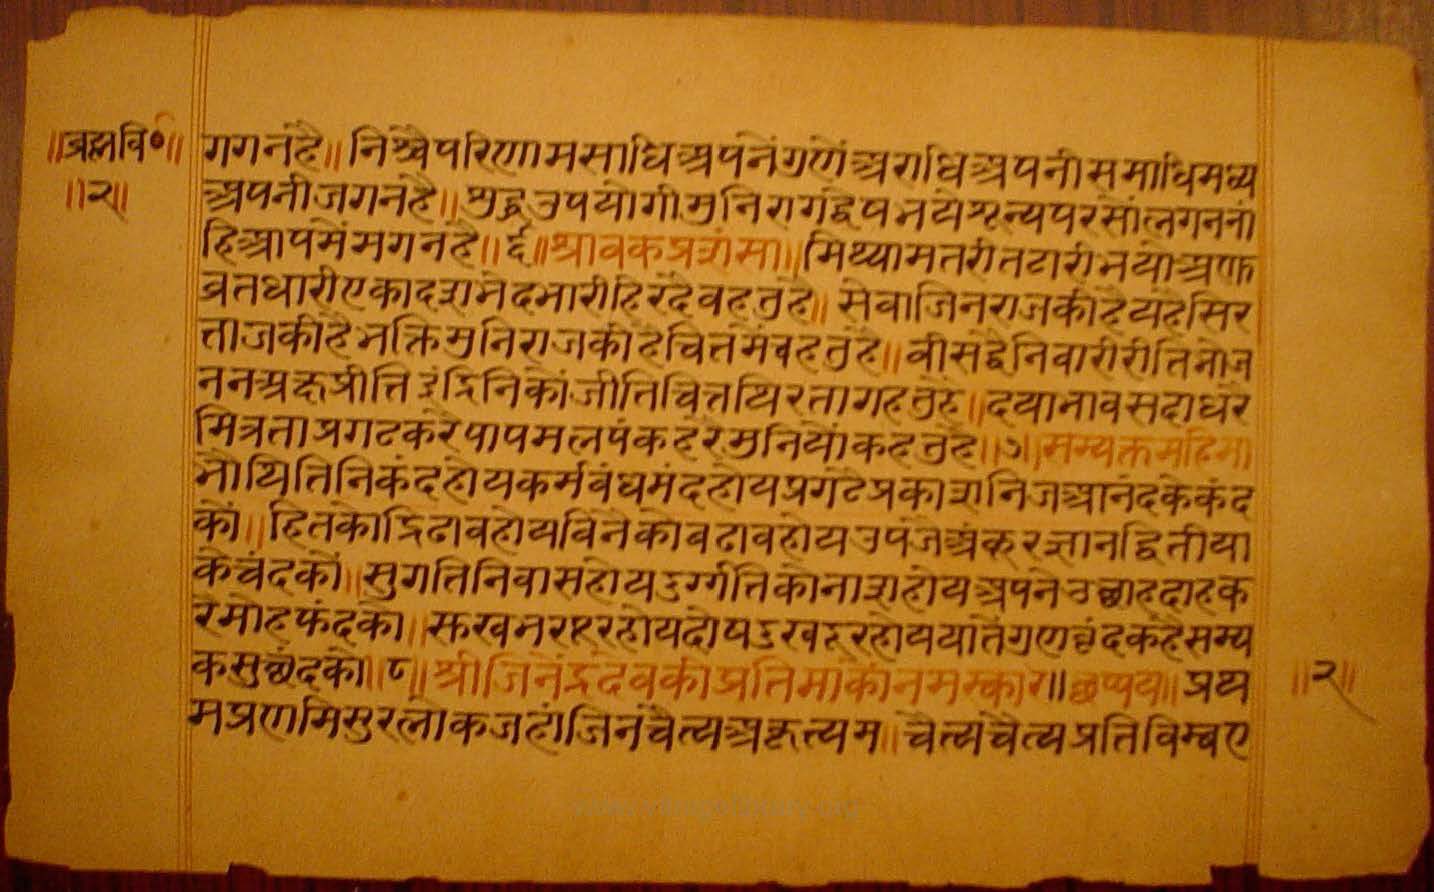 ॥ब्रह्मवि०॥
॥२॥
गगनहै॥ निश्चैपरिणामसाधिअपनेंगुणेंअराधिअपनीसमाधिमध्य
अपनीजगनहै॥ शुद्धउपयोगीमुनिरागद्वेषभयेशून्यपरसोंलगननां
हिआपमेंमगनहै॥६॥श्रावकप्रशंसा॥मिथ्यामतरीतटारीभयोअणु
व्रतधारीएकादशभेदभारीहिरदैवहतुहै॥ सेवाजिनराजकीहैयहेसिर
ताजकीहैभक्तिमुनिराजकीहैचित्तमेंचहतुहै॥ वीसद्वैनिवारीरीतिभोज
नअक्षप्रीतिइंद्रिनिकोंजीतिचित्तथिरतागहतुहै॥दयाभावसदाधरै
मित्रताप्रगटकरैपापमलपंकहरैमुनियोंकहतुहै॥७॥सम्यक्तमहिमा
भौथितिनिकंदहोयकर्मबंधमंदहोयप्रगटैप्रकाशनिजआनंदकेकंद
कों॥ हितकोद्रिढावहोयविनेकोबढावहोयउपजैअंकूरज्ञानद्वितीया
केचंदकों॥सुगतिनिवासहोयदुर्ग्गतिकोनाशहोयअपनेउछाहदाहक
रेमोहफंदको॥सुखभरपूरहोयदोषदुखदूरहोययातेंगुणवृंदकहैसम्य
कसुछंदको॥८॥श्रीजिनेंद्रदेवकीप्रतिमाकोंनमस्कार॥छप्पय॥ प्रथ
मप्रणमिसुरलोकजहांजिनचैत्यअकृत्यम॥ चैत्यचैत्यप्रतिविम्बए
॥२॥